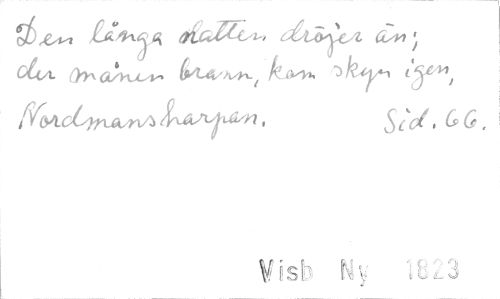 Den långa natten dröjer än;
der månen brann, kom skyn igen,
Nordmansharpan. Sid. 66.
Visb Ny 1823